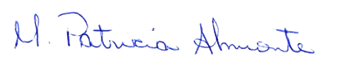 M. Patricia Almonte